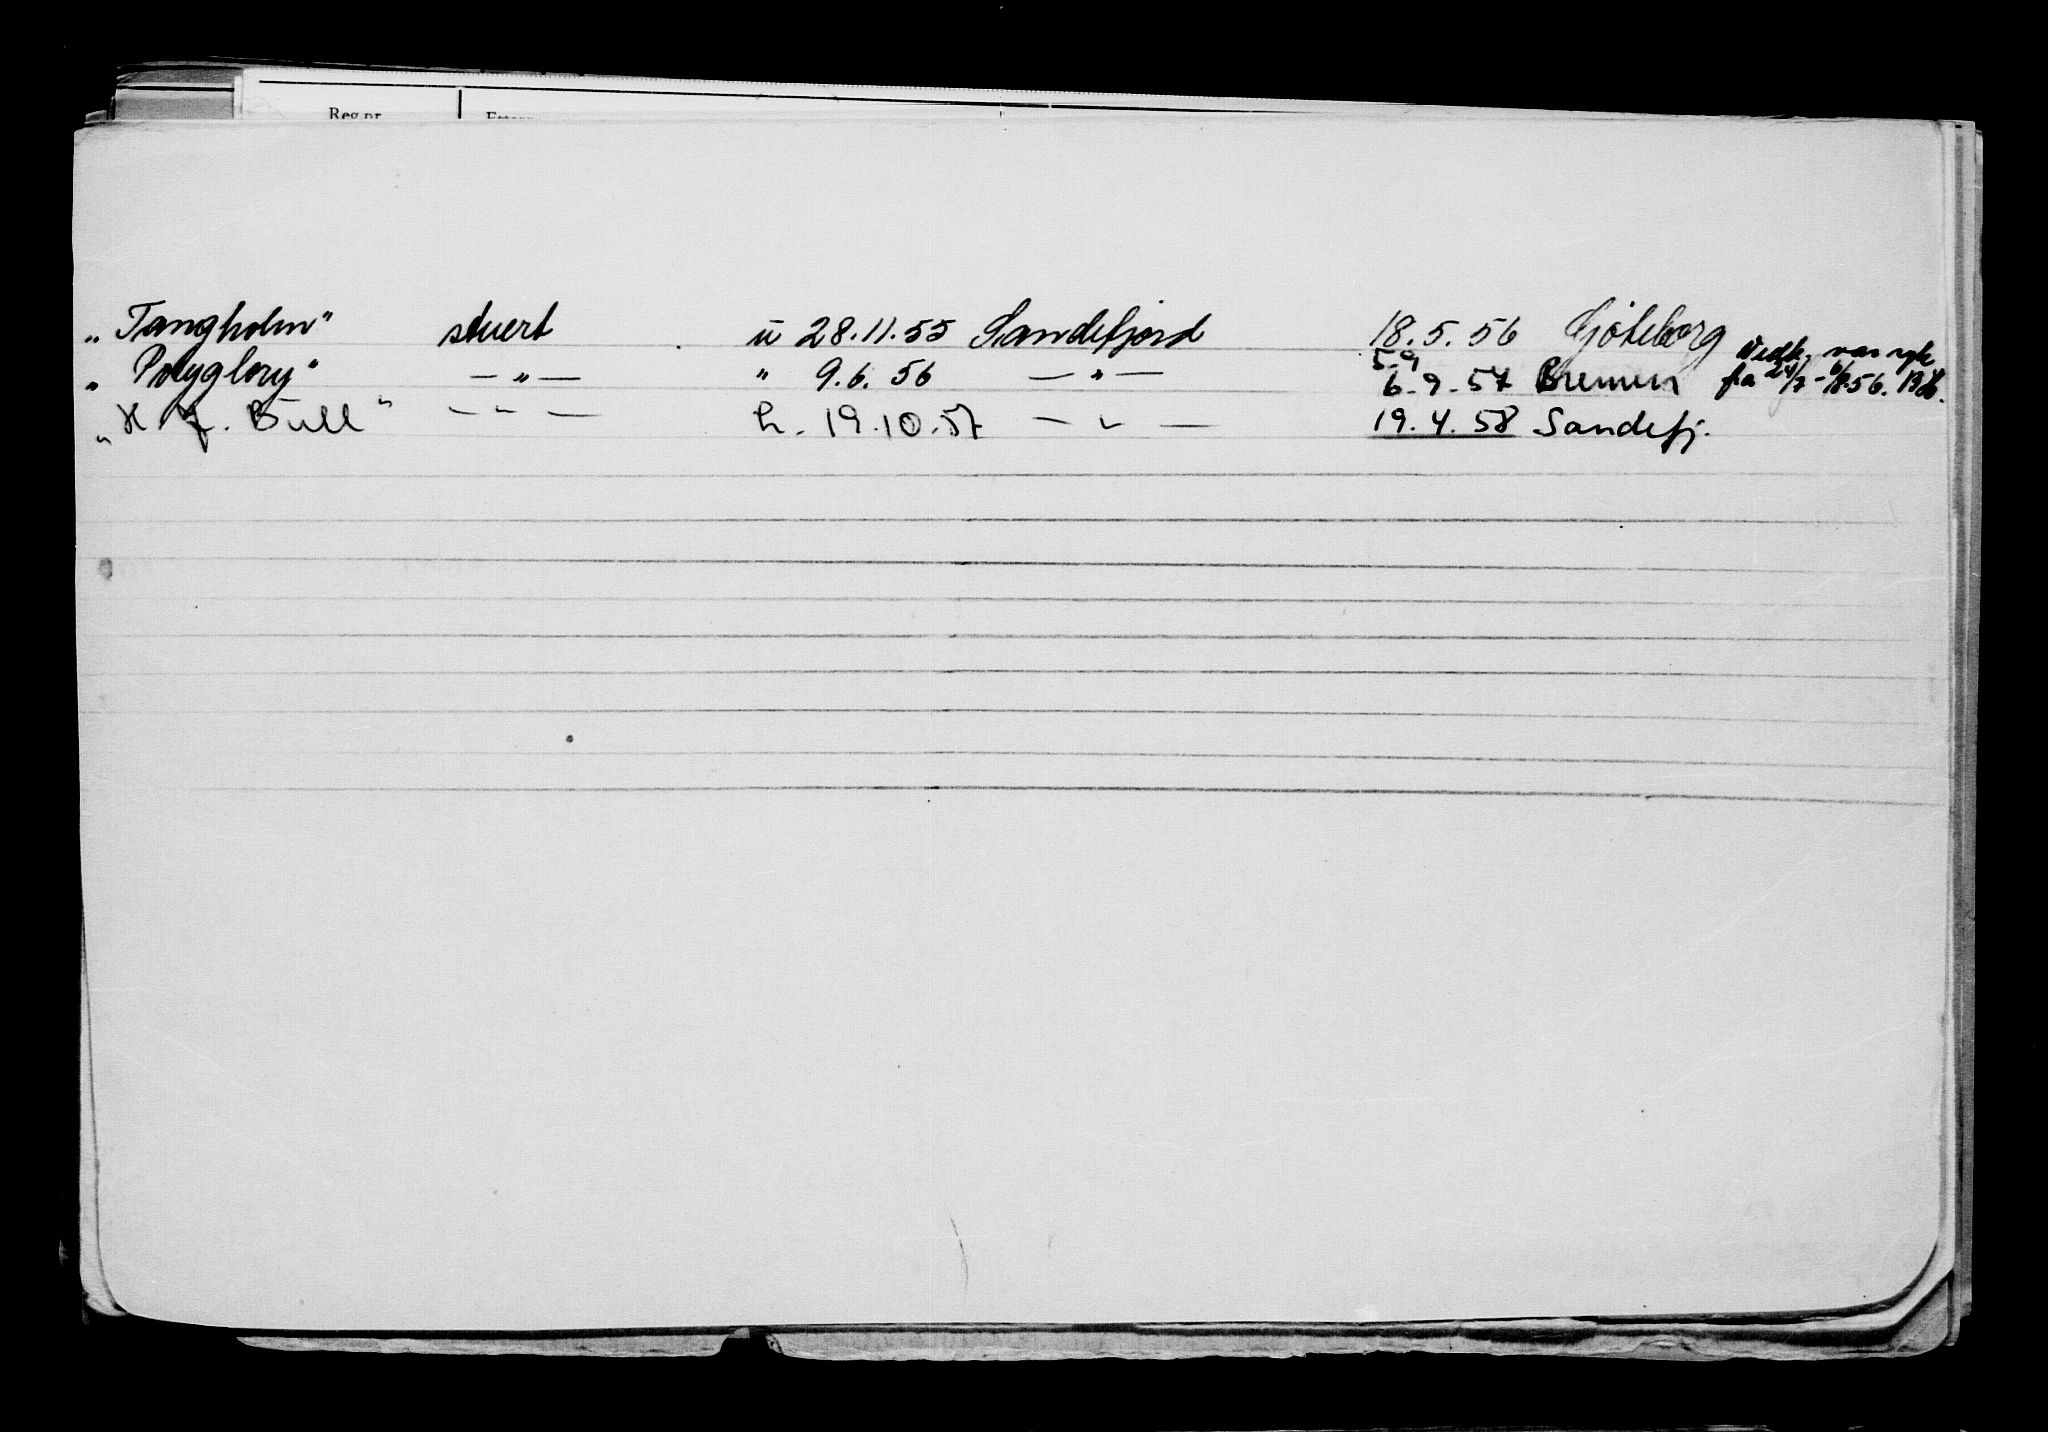 Reg.nr.
"Tangholm" stuert ū 28.11.55 Sandefjord 18.5.56 Göteborg
"Polyglory" — " — " 9.6.56 — " — 5-9 6-9-57 Bremen Vedk. var syk fra 24/7 - 6/8-56.
"H J. Bull" — " — h. 19.10.57 — " — 19.4.58 Sandefj.